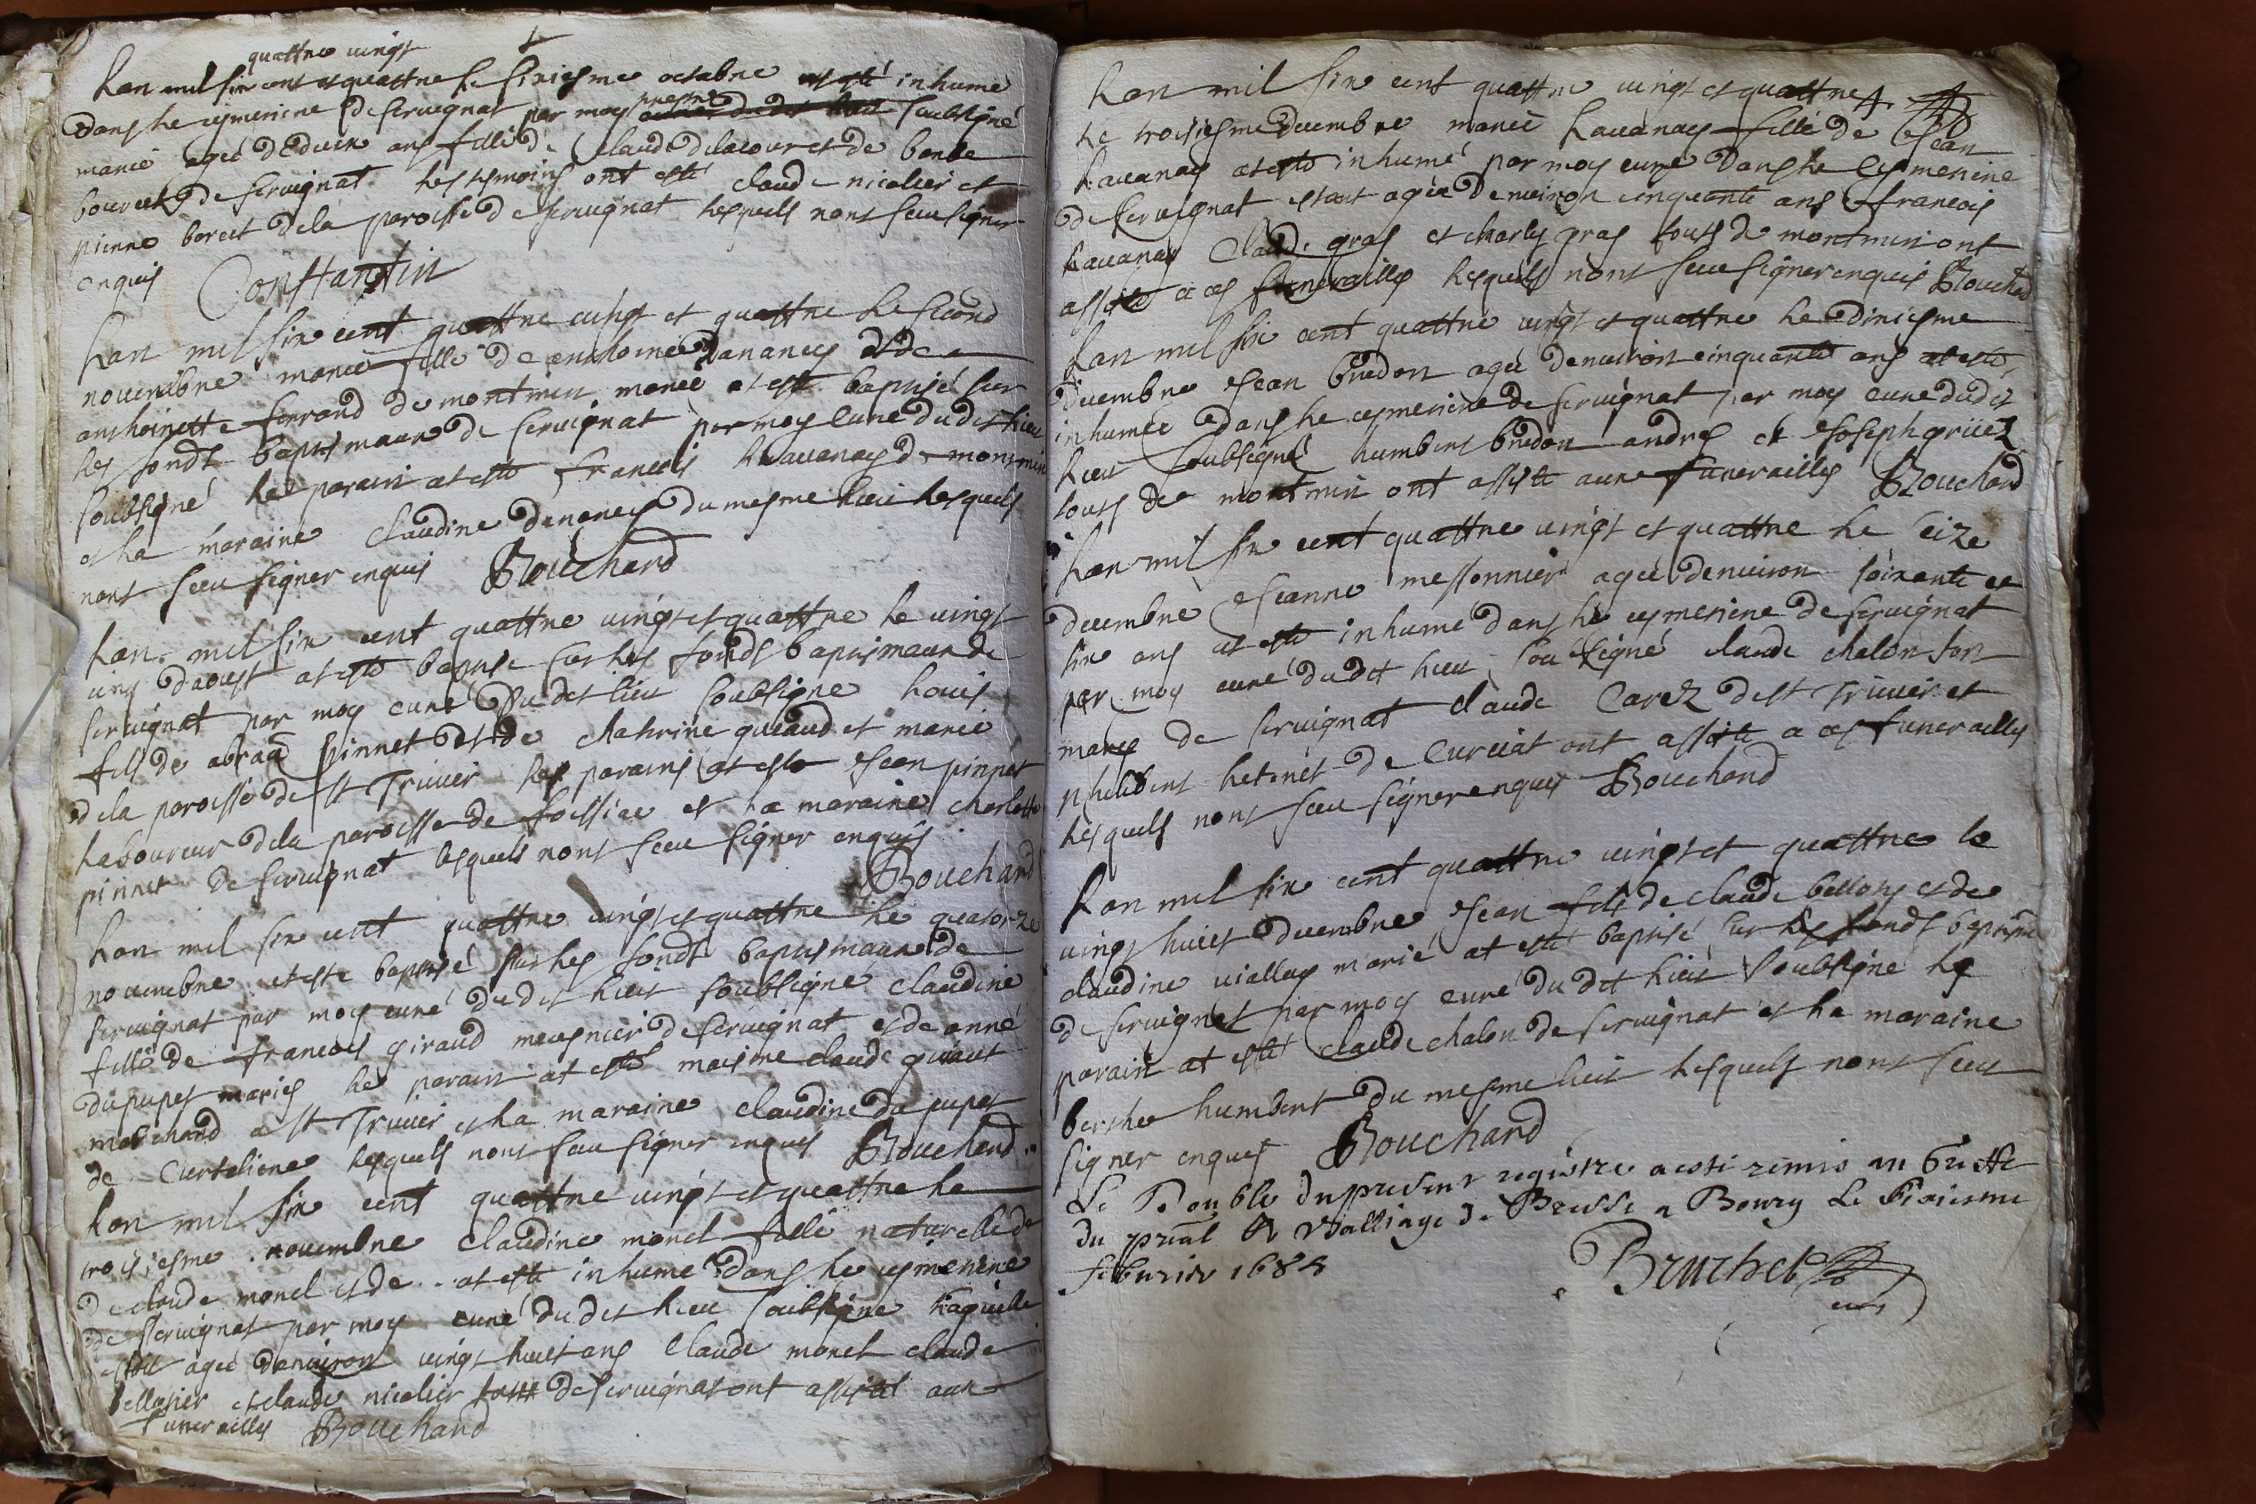 quattre vingt
Lan mil six cent et quattre le sixiesme octobre at esté inhumé
dans le cymeriere de servignat par moy prestre soubsigné
marie agée d'Eduix ans fille de Claude delacour et de benoe
bourcet de servignat les tesmoins ont esté claude nicolier et
pierre borcet dela paroisse de servignat lesquels nont sceu signer
enquis Constantin
Lan mil six cent quattre vingt et quattre le second
novembre marie fille de anthoine Dananches et de
anthoinette ferrand de montmin mariés at esté baptisé sur
les fonds baptismaux de servignat par moy curé dudit lieu
soubsigné le parain at esté francois Lavanay de montmin
et la maraine claudine dananche du mesme lieu lesquels
nont sceu signer enquis Bouchard
Lan mil six cent quattre vingt et quattre le vingt
cinq daoust at esté baptisé sur les fonds baptismaux de
servignat par moy curé dudit lieu soubsigné Louis
fils de abraã pinnet et de chatrine guiaud et mariés
dela paroisse de st Trivier les parains at esté Jean pinnet
laboureur dela paroisse de foissiac et la maraine charlotte
pinnet de servignat lesquels nont sceu signer enquis
Bouchard
Lan mil six cent quattre vingt et quattre le quatorze
novembre at esté baptisé sur les fonds baptismaux de
servignat par moy curé dudit lieu soubsigné claudine
fille de francois giraud meusnier de servignat et de anne
dupupet mariés le parain at esté maisme claude giraut
marchand a st Trivier et la maraine claudine dupupet
de Curtelione lesquels nont sceu signer enquis Bouchard
Lan mil six cent quattre vingt et quattre le
troisiesme novembre claudine morel fille naturelle de
de claude morel et de at esté inhumé dans le cymeriere
de servignat par moy curé dudit lieu soubsigné laquelle
estoit agée denviron vingt huict ans Claude morel claude
pellorier et claude nicolier touts de servignat ont assistés aux
funerailles Bouchard
Lan mil six cent quattre vingt et quattre
le troisiesme decembre marie Lavanay fille de Jean
Lavanay at esté inhumé par moy curé dans le Cymeriere
de servignat estant agée denviron cinquante ans francois
Lavanay Claude gras et charles gras touts de montmin ont
assisté a ces funerailles lesquels nont sceu signer enquis Bouchard
Lan mil six cent quattre vingt et quattre le dixiesme
decembre Jean bredon agé denviron cinquante ans at esté
inhumée dans le cymeriere de servignat par moy curé dudit
lieu soubsigné humbert bredon andres et Joseph gruez
touts de montmin ont assisté aux funerailles Bouchard
Lan mil six cent quattre vingt et quattre le seize
decembre Jeanne messonnier agée denviron soixante et
six ans at esté inhumé dans le cymeriere de servignat
par moy curé dudit lieu soubsigné claude chalon son
mary de servignat claude Carez de st Trivier et
philibert de Curciat ont assisté a ces funerailles
lesquels nont sceu signer enquis Bouchard
Lan mil six cent quattre vingt et quattre le
vingt huict decembre Jean fils de claude bellors et de
claudine viallay marié at esté baptisé sur les fonds baptism
de servignat par moy curé dudit lieu soubsigné le
parain at esté claude chalon de servignat et la maraine
berthe humbert du mesme lieu lesquels nont sceu
signer enquis Bouchard
Le Double du present registre a esté remis au Greffe
du pñal & Balliage de Bresse a Bourg Le
febvrier 1685
Bruchet